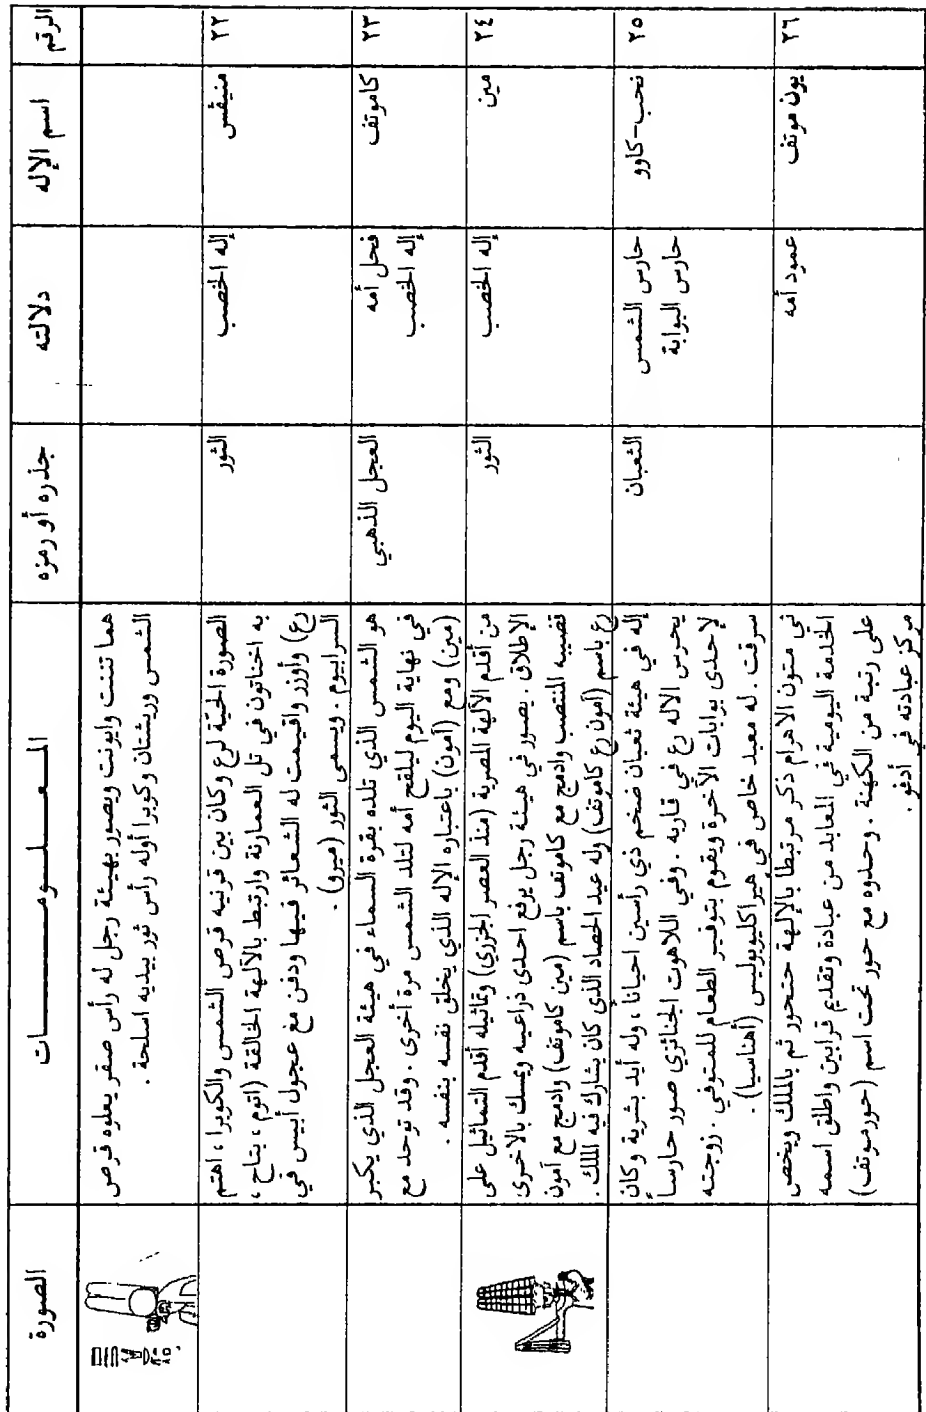 الرقم
اسم الإله
دلالته
جذره أو رمزه
المعلومات
الصورة
هما تننت وايونت ويصور بهيئة رجل له رأس صقر يعلوه قرص
الشمس وريشتان وكوبرا أوله رأس ثور بيديه اسلحة .
٢٢
منيفس
إله الخصب
الثور
الصورة الحيّة لرع وكان بين قرنيه قرص الشمس والكوبرا ، اهتم
به اخناتون في تل العمارنة وارتبط بالآلهة الخالقة (اتوم ، بتاح ،
رع) وأوزر واقيمت له الشعائر فيها ودفن مع عجول أبيس في
السرابيوم . ويسمى الثور (ميرو) .
٢٣
كاموتف
فحل أمه
إله الخصب
العجل الذهبي
هو الشمس الذي تلده بقرة السماء في هيئة العجل الذي يكبر
في نهاية اليوم ليلقح أمه لتلد الشمس مرة أخرى . وقد توحد مع
(مين) ومع (آمون) باعتباره الإله الذي يخلق نفسه بنفسه .
٢٤
مين
إله الخصب
الثور
من أقدم الآلهة المصرية (منذ العصر الجزري) وتماثيله أقدم التماثيل على
الإطلاق . يصور في هيئة رجل يرفع احدى ذراعيه ويمسك بالاخرى
قضيبه المنتصب وادمج مع كاموتف باسم (مين كاموتف) وادمج مع آمون
رع باسم (آمون رع كاموتف) وله عيد الحصاد الذي كان يشارك فيه الملك .
٢٥
نحب-كاوو
حارس الشمس
حارس البوابة
الثعبان
إله في هيئة ثعبان ضخم ذي رأسين احياناً ، وله أيد بشرية وكان
يحرس الاله رع في قاربه . وفي اللاهوت الجنائزي صور حارساً
لإحدى بوابات الآخرة ويقوم بتوفير الطعام للمتوفي . زوجته
سرقت . له معبد خاص في هيراكليوبوليس (أهناسيا) .
٢٦
يون موتف
عمود أمه
في متون الاهرام ذكر مرتبطا بالإلهة حتحور ثم بالملك ويخص
الخدمة اليومية في المعابد من عبادة وتقديم قرابين واطلق اسمه
على رتبة من الكهنة . وحدوه مع حور تحت اسم (حورموتف)
مركز عبادته في أدفو .